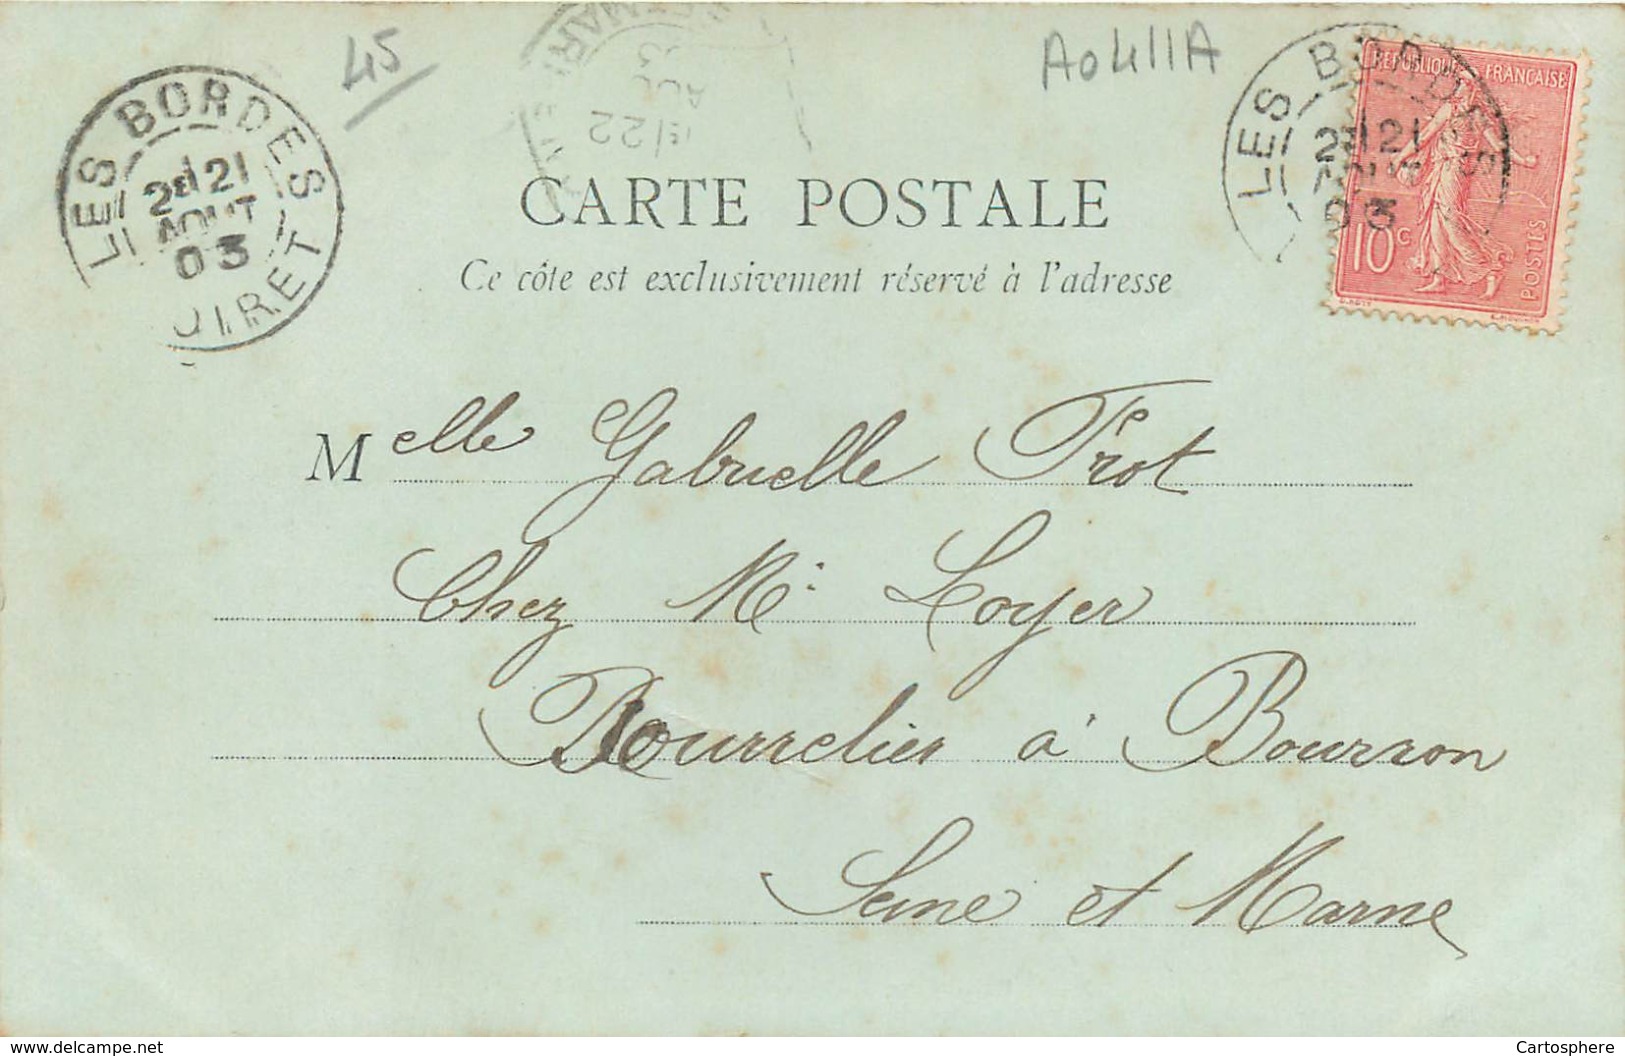 45
A0411A
LES BORDES
2E 21
AOUT
03
LOIRET
22
AOU
03
LES BORDES
2E 21
AOUT
03
REPUBLIQUE FRANÇAISE
10c
POSTES
CARTE POSTALE
Ce côte est exclusivement réservé à l'adresse
Melle Gabrielle Frot
Chez Mr. Loyer
Bourrelier à Bourron
Seine et Marne
delcampe.net
Cartosphere